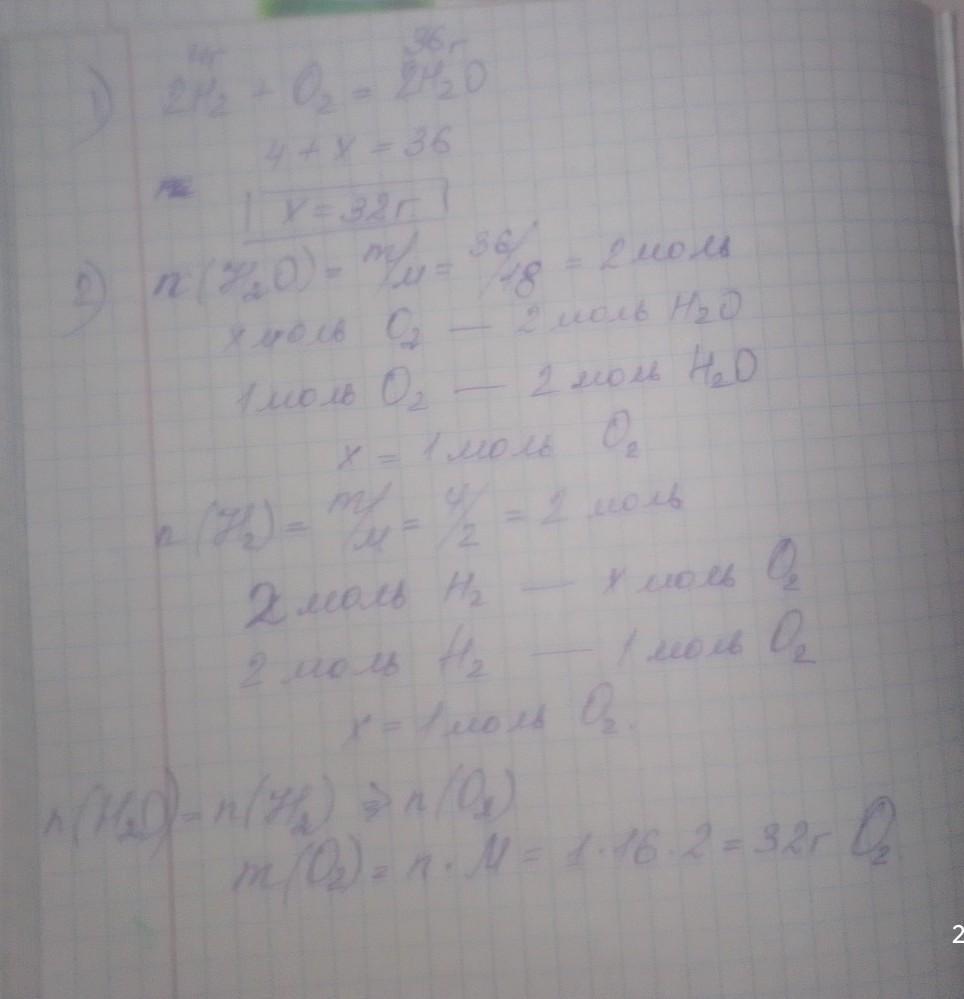 4г 36г
1) 2H₂ + O₂ = 2H₂O
4 + x = 36
x = 32г
2) n(H₂O) = m/M = 36/18 = 2 моль
x моль O₂ — 2 моль H₂O
1 моль O₂ — 2 моль H₂O
x = 1 моль O₂
n(H₂) = m/M = 4/2 = 2 моль
2 моль H₂ — x моль O₂
2 моль H₂ — 1 моль O₂
x = 1 моль O₂.
n(H₂O) = n(H₂) ⇒ n(O₂)
m(O₂) = n · M = 1 · 16 · 2 = 32г O₂
2